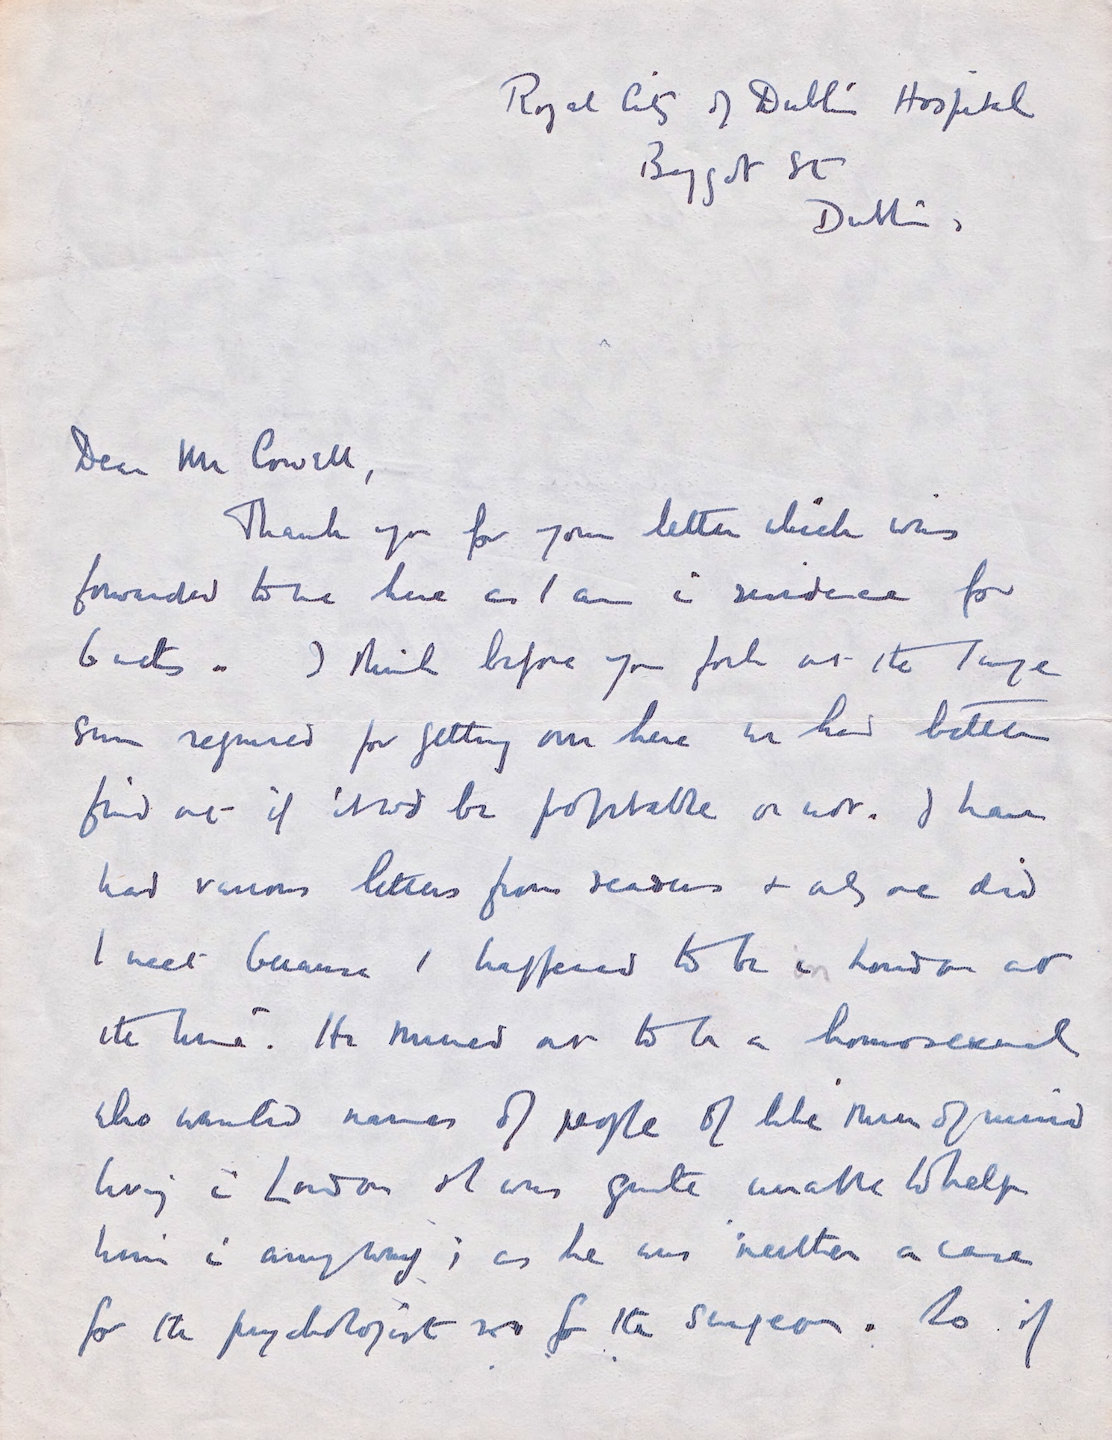 Royal City of Dublin Hospital
Baggot St
Dublin.
Dear Mr Cowell,
Thank you for your letter which was
forwarded to me here as I am in residence for
6 weeks. I think before you fork out the large
sum required for getting over here we had better
find out if it wd be profitable or not. I have
had various letters from readers & only one did
I meet because I happened to be in London at
the time. He turned out to be a homosexual
who wanted names of people of like turn of mind
living in London & I was quite unable to help
him in any way; as he was neither a case
for the psychologist nor for the surgeon. So if